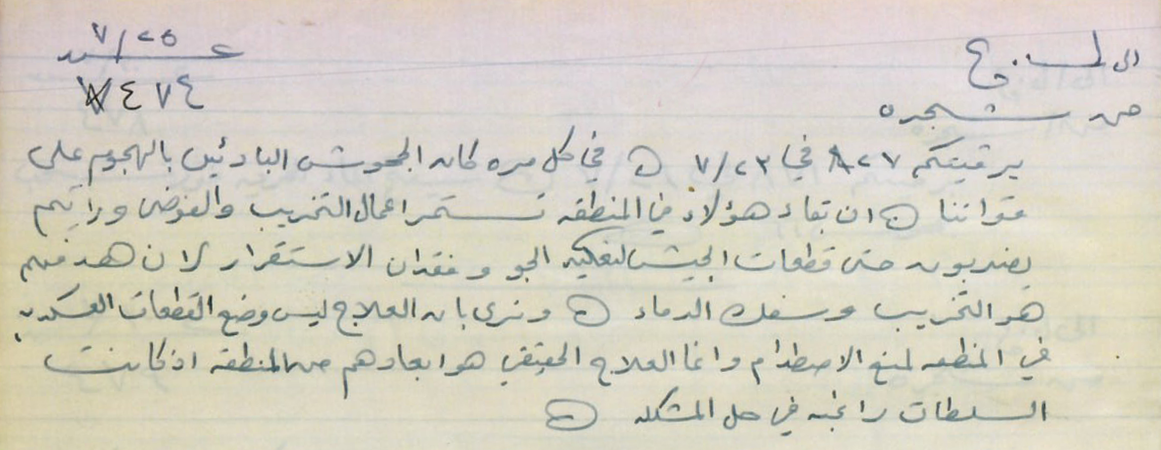 ٧/٢٥
٤٧٤
الى
من شجره
برقيتكم ٨٢٧ في ٧/٢٣ في كل مره كان الجحوش البادئين بالهجوم على
قواتنا ان بقاء هؤلاء في المنطقه تستمر اعمال التخريب والفوضى ورأيتم
يضربون حتى قطعات الجيش لتعكير الجو وفقدان الاستقرار لان هدفهم
هو التخريب وسفك الدماء ونرى بان العلاج ليس وضع القطعات العسكريه
في المنطقه لمنع الاصطدام وانما العلاج الحقيقي هو ابعادهم من المنطقه اذ كانت
السلطات راغبه في حل المشكله